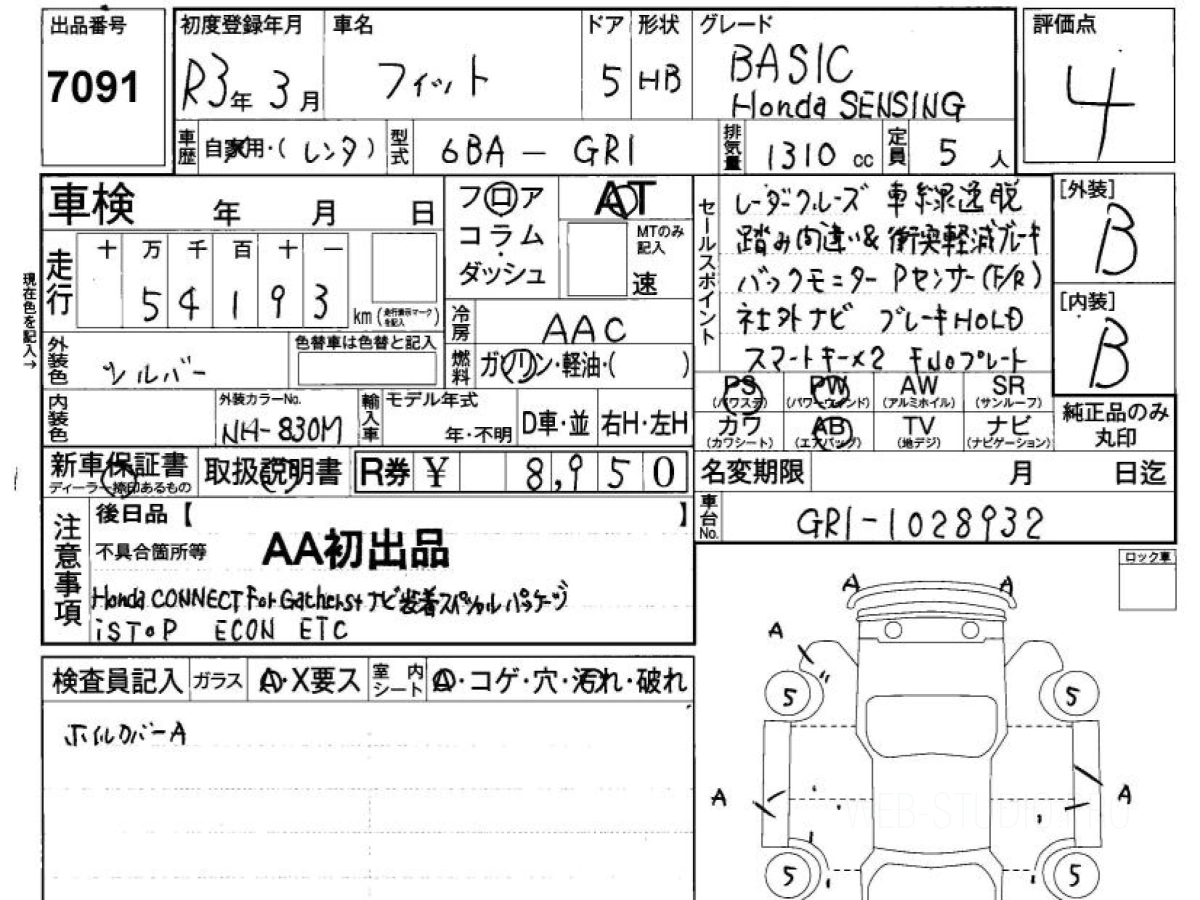 出品番号
7091
初度登録年月
R3年 3月
車名
フィット
ドア
5
形状
HB
グレード
BASIC
Honda SENSING
評価点
4
車歴
自家用・( レンタ )
型式
6BA - GR1
排気量
1310 cc
定員
5 人
車検 年 月 日
走行
十 万 千 百 十 一
5 4 1 9 3 km (走行表示マークを記入)
現在色を記入→
外装色
シルバー
色替車は色替と記入
内装色
外装カラーNo.
NH-830M
輸入車
モデル年式
年・不明
D車・並
右H・左H
フロア
コラム
ダッシュ
AT
MTのみ
記入
速
冷房
AAC
燃料
ガソリン・軽油・( )
セールスポイント
レーダクルーズ 車線逸脱
踏み間違い&衝突軽減ブレーキ
バックモニター Pセンサー(F/R)
社外ナビ ブレーキHOLD
スマートキー×2 FNoプレート
[外装]
B
[内装]
B
PS
(パワステ)
PW
(パワーウインド)
AW
(アルミホイル)
SR
(サンルーフ)
カワ
(カワシート)
AB
(エアバッグ)
TV
(地デジ)
ナビ
(ナビゲーション)
純正品のみ
丸印
新車保証書
ディーラー捺印あるもの
取扱説明書
R券 ¥ 8,950
名変期限 月 日迄
車台No.
GR1-1028932
注意事項
後日品【 】
不具合箇所等
AA初出品
Honda CONNECT For Gathers+ナビ装着スペシャルパッケージ
iSTOP ECON ETC
検査員記入
ガラス
A・X要ス
室内
シート
A・コゲ・穴・汚れ・破れ
ホイルカバーA
ロック車
A A
A
5 5
A A
5 5
WEB-STUDIO.PRO